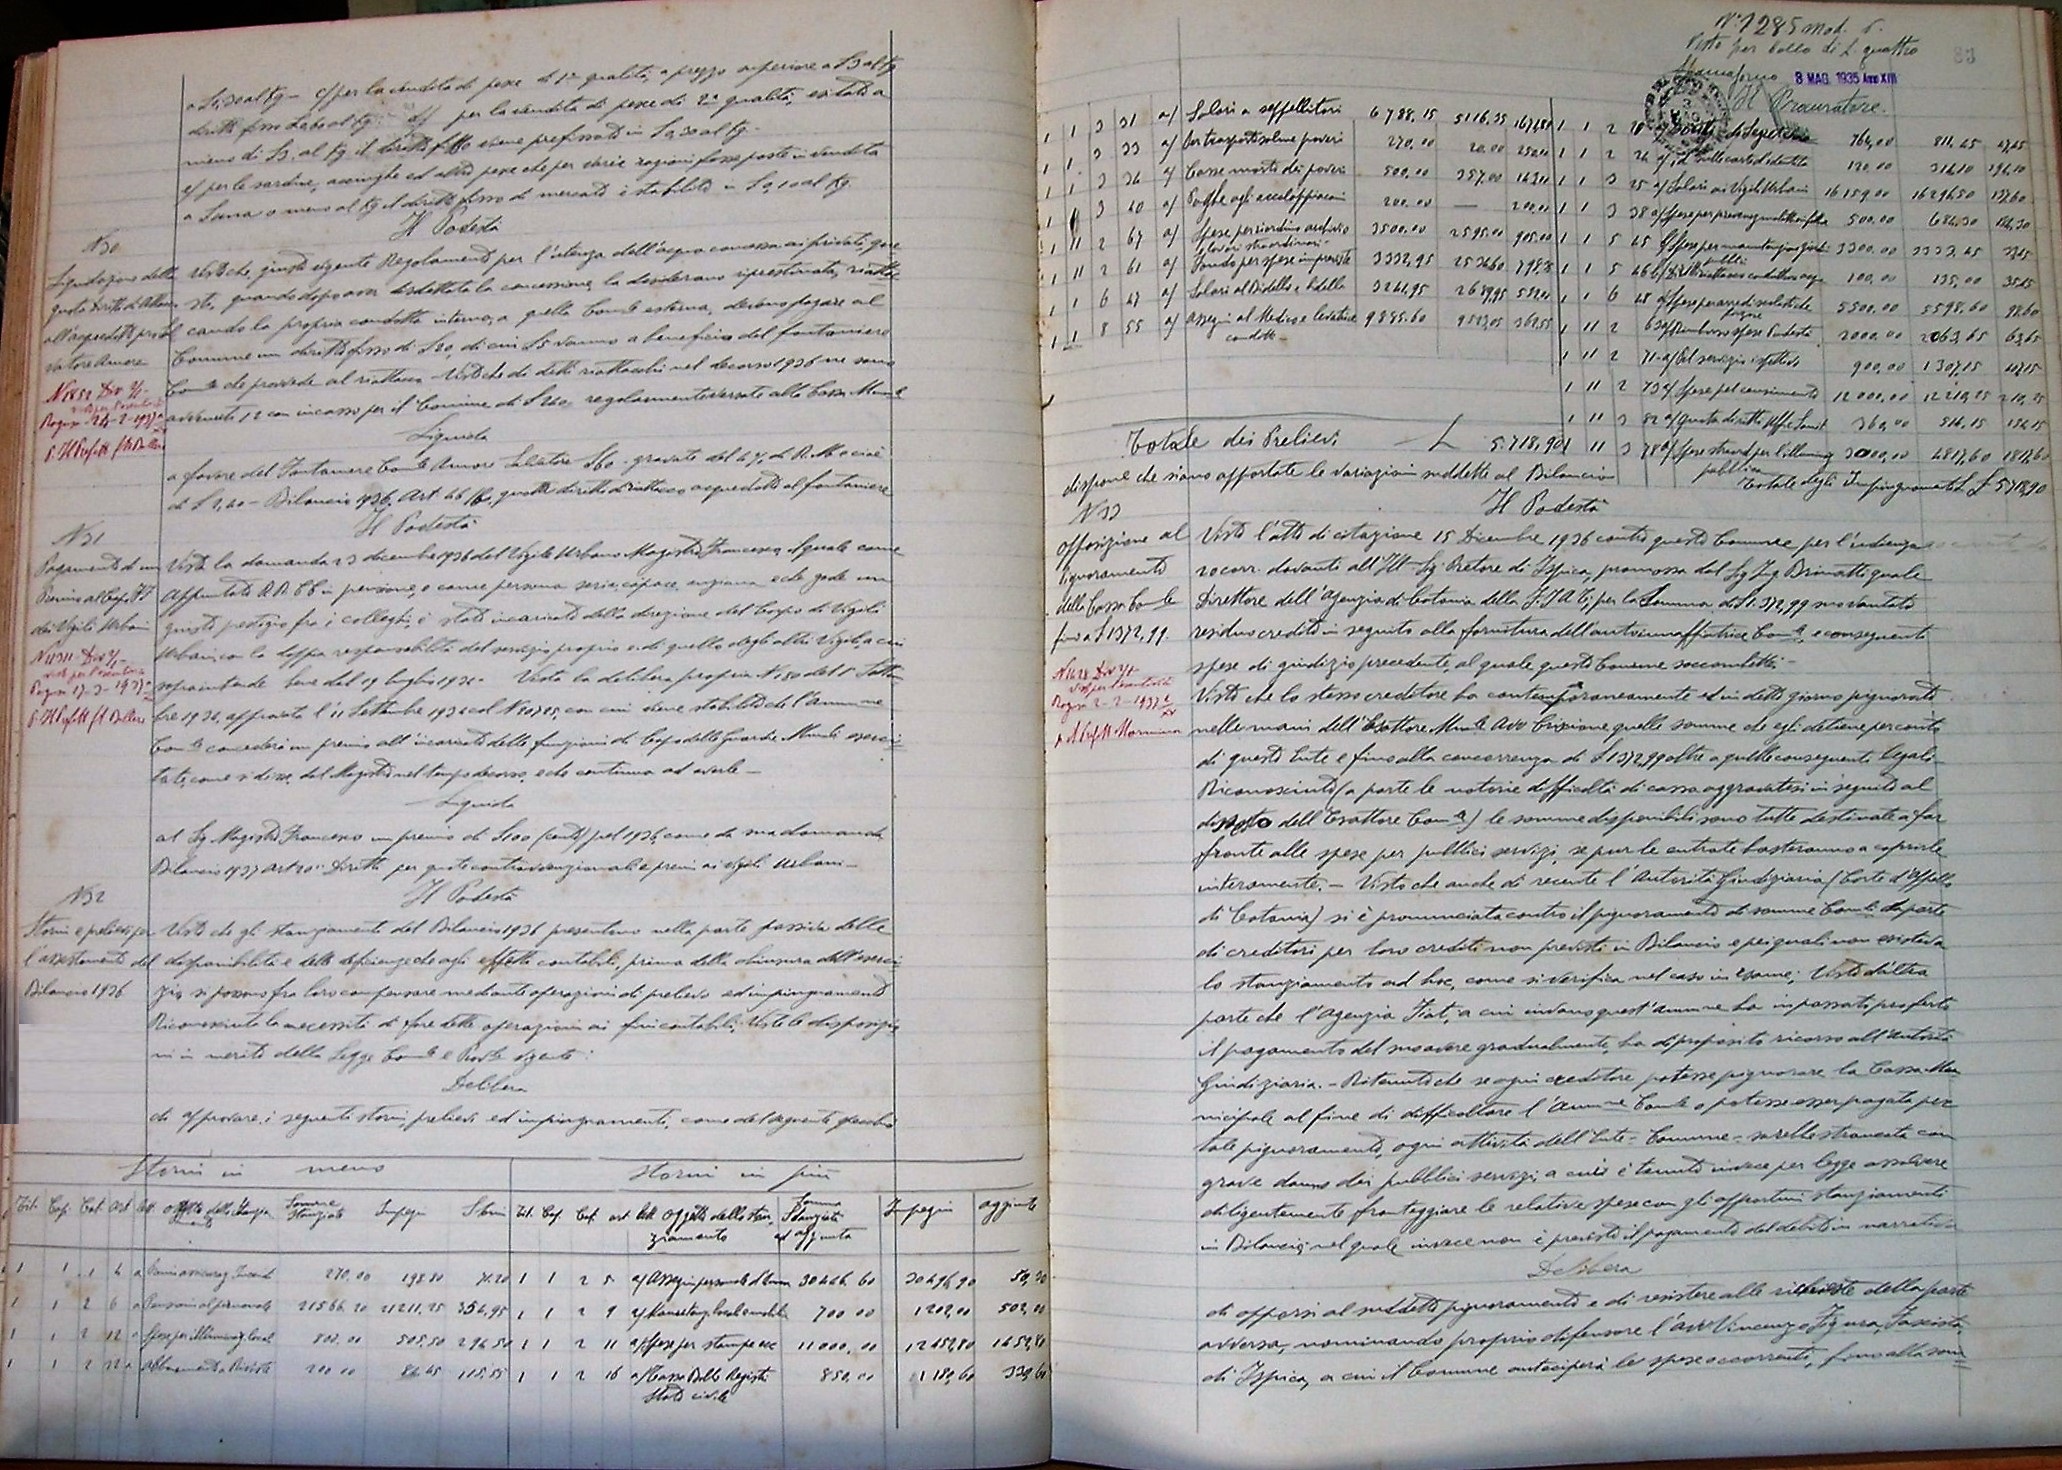 a L 0,30 al Kg - c/ per la vendita di pesce di 1ª qualità, a prezzo superiore a L 3 al Kg
diritto fisso al Kg: d/ per la vendita di pesce di 2ª qualità, a
meno di L 3. al Kg il diritto fisso viene prefissato in L 0,30 al Kg -
e/ per le sardine, acciughe ed altro pesce che per varie ragioni fosse posto in vendita
a Lira o meno al Kg il diritto fisso di mercato è stabilito in L 0,10 al Kg.
Il Podestà
N 30
Liquidazione della
quota diritto di
all'acquedotto
Amore
N 1852 Div 2/1 -
Ragusa 24-2-1937
p. Il Prefetto
Visto che, giusta vigente Regolamento per l'utenza dell'acqua concessa ai privati, que
sti, quando dopo aver disdettata la concessione, la desiderano ripristinata,
cando la propria condotta interna, a quella Com.le esterna, devono pagare al
Comune un diritto fisso di L 20, di cui L 5 vanno a beneficio del fontaniere
Com.le che provvede al riattacco - Visto che di detti riattacchi nel decorso 1936 ne sono
avvenuti 12 con incasso per il Comune di L 240 regolarmente versate alla Cassa Mun.le
Liquida
a favore del Fontaniere Com.le Amore Salvatore L 60 - gravate del 4% di R.M. o cioè
di L 2,40 - Bilancio 1936, Art 46 quota diritto di riattacco acquedotto al fontaniere
Il Podestà
N 31
Pagamento di un
Premio al Capo
dei Vigili Urbani
N 11311 Div 2/1 -
Ragusa 17-3-1937
p. Il Prefetto
Vista la domanda 23 dicembre 1936 del Vigile Urbano Magistro Francesco, il quale come
Appuntato RR. CC in pensione, e come persona seria, capace, anziana e che gode un
giusto prestigio fra i colleghi, è stato incaricato della direzione del Corpo di Vigili
Urbani, con la doppia responsabilità del servizio proprio e di quello degli altri Vigili, a cui
sopraintende bene dal 19 luglio 1932 - Vista la delibera propria N 150 del 1° Settem
bre 1932, approvata l'11 Settembre 1932 col N 20785, con cui viene stabilito che l'Amm.ne
Com.le concederà un premio all'incaricato delle funzioni di Capo delle Guardie Mun.li eserci
tate, come si disse, dal Magistro nel tempo decorso, e che continua ad averle -
Liquida
al Sig Magistro Francesco un premio di L 100 (cento) pel 1936, come da sua domanda
Bilancio 1937 Art 20: Diritti per quote contravvenzionali e premi ai Vigili Urbani -
Il Podestà
N 32
Storni e prelievi per
l'assestamento del
Bilancio 1936
Visto che gli stanziamenti del Bilancio 1936 presentano nella parte passiva delle
disponibilità e delle deficienze che agli effetti contabili, prima della chiusura dell'eserci
zio, si possono fra loro compensare mediante operazioni di prelievo ed impinguamento
Riconosciuta la necessità di fare dette operazioni ai fini contabili; Viste le disposizio
ni in merito della Legge Com.le e Prov.le vigente:
Delibera
di approvare i seguenti storni, prelievi ed impinguamenti, come dal seguente specchio
Storni in meno Storni in più
Tit. Cap. Cat. Art Lett. Oggetto dello Stanziamento Somma Stanziata Impegni Storni Tit. Cap. Cat. Art Lett. Oggetto dello stanziamento Somma Stanziata ed aggiunta Impegni Aggiunte
1 1 1 4 a 270,00 198,80 71.20 1 1 2 5 a/ Assegni personale d'ammi 30446,60 30496,90 50,30
1 1 2 6 a Pensioni al personale 21566.20 21211,25 354,95 1 1 2 9 a/ Manutenz locali e mobili 700 00 1202,00 502,00
1 1 2 12 a Spese per illuminaz local 802.00 505,50 296,50 1 1 2 11 a/ Spese per stampe ecc 11000,00 12459,80 1459,80
1 1 2 22 a Abbonamento a Riviste 200 00 84,45 115,55 1 1 2 16 a/ Tassa Bollo Registri 850,00 1180,60 330,60
Stato civile
N° 1285 mod. 6.
Visto per bollo di L. quattro
Spaccaforno 8 MAG. 1935 Anno XIII
Il Procuratore.
83
1 1 3 31 a/ Salari a seppellitori 6788,15 5116,35 1671,80 1 1 2 18 a/ Diritti di Segreteria 764,00 811,45 47,45
1 1 3 33 a/ Per trasporto salme poveri 270,00 20,00 250,00 1 1 2 24 a/ id sulle carte d'identità 120,00 316,10 196,10
1 1 3 36 a/ Casse morto dei poveri 500,00 357,00 143,00 1 1 3 25 a/ Salari ai Vigili Urbani 16159.00 16296,50 137,60
1 1 3 40 a/ Paghe agli accalappiacani 200.00 — 200,00 1 1 3 38 a/ Spese per prevenz malattie infettive 500.00 684,30 184,30
1 11 2 67 a/ Spese per riordino archivio 3500.00 2595,00 905,00 1 1 5 45 Spese per manutenzione giardini pubblici 3300.00 3333,45 33,45
e lavori straordinari -
1 11 2 61 a/ Fondo per spese impreviste 3332,95 2534,60 798,35 1 1 5 46 b/ Diritti riattacco condotta acqua 100,00 135,00 35,00
1 1 6 47 a/ Salari al Bidello e bidella 3241,95 2689,95 552,00 1 1 6 48 a/ Spese per arredi scolastici 5500.00 5598.60 98,60
1 1 8 55 a/ Assegni al Medico e levatrice 9885.60 9515,05 369,55 1 11 2 63 a/ Rimborso spese Podestà 2000.00 2063,65 63,65
condotte -
1 11 2 71 a/ Pel servizio ispettivo 900,00 1307,15 407,15
1 11 2 73 a/ Spese pel censimento 12000.00 12210,25 210,25
1 11 3 82 a/ Quota diritti Uff. Sanit. 360,00 514,15 154,15
Totale dei Prelievi — L 5.718,90 1 11 3 78 a/ Spese straord per l'illumin pubblica 3000,00 4817,60 1817,60
dispone che siano apportate le variazioni suddette al Bilancio Totale degli Impinguamenti L 5718,90
Il Podestà
N 33
opposizione al
pignoramento
della Cassa Com.le
fino a L 1372,99.
N 1628 Div 2/1 -
Ragusa 2-2-1937
p. Il Prefetto
Visto l'atto di citazione 15 Dicembre 1936 contro questo Comune per l'udienza
20 corr. davanti all'Ill. Sig. Pretore di Ispica, promossa dal Sig Ing quale
Direttore dell'Agenzia di Catania della F.I.A.T., per la Somma di L 1.372,99 suo vantato
residuo credito in seguito alla fornitura dell'autoinnaffiatrice Com.le, e conseguenti
spese di giudizio precedente, al quale questo Comune soccombette -
Visto che lo stesso creditore ha contemporaneamente ed in detto giorno pignorato
nelle mani dell'Esattore Mun.le Avv Crisione quelle somme che egli detiene per conto
di questo Ente e fino alla concorrenza di L 1372,99 oltre a quelle conseguenti legali
Riconosciuto (a parte le notorie difficoltà di cassa aggravatesi in seguito al
dissesto dell'Esattore Com.le) le somme disponibili sono tutte destinate a far
fronte alle spese per pubblici servizi, se pur le entrate basteranno a coprirle
interamente. - Visto che anche di recente l'Autorità Giudiziaria (Corte d'Appello
di Catania) si è pronunciata contro il pignoramento di somme Com.li da parte
di creditori per loro crediti non previsti in Bilancio e pei quali non esisteva
lo stanziamento ad hoc, come si verifica nel caso in esame; Visto d'altra
parte che l'Agenzia Fiat, a cui invano quest'amm.ne ha in passato proferto
il pagamento del suo avere gradualmente, ha di proposito ricorso all'autorità
Giudiziaria. - Ritenuto che se ogni creditore potesse pignorare la Cassa Mu
nicipale al fine di difficoltare l'Amm.ne Com.le o potesse esser pagato per
tale pignoramento, ogni attività dell'Ente - Comune - sarebbe stroncata con
grave danno dei pubblici servizi, a cui è tenuto invece per legge assolvere
diligentemente fronteggiare le relative spese con gli opportuni stanziamenti
in Bilancio; nel quale invece non è previsto il pagamento del debito in narrativa
Delibera
di opporsi al suddetto pignoramento e di resistere alle richieste della parte
avversa, nominando proprio difensore l'avv Vincenzo Figura, Fascista,
di Ispica, a cui il Comune anteciperà le spese occorrenti, fino alla som=